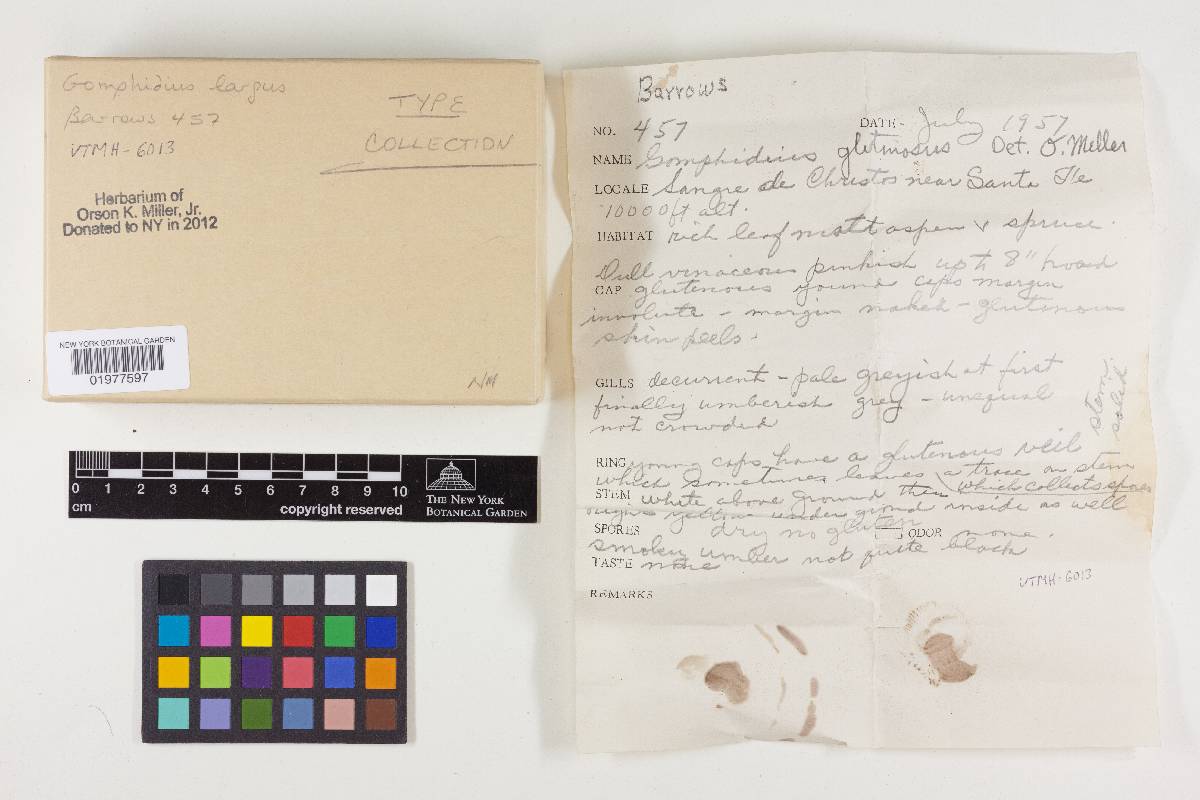 Gomphidius largus
Barrows 457
VTMH-6013
TYPE
COLLECTION
Herbarium of
Orson K. Miller, Jr.
Donated to NY in 2012
NEW YORK BOTANICAL GARDEN
01977597
NM
0 1 2 3 4 5 6 7 8 9 10
cm
copyright reserved
THE NEW YORK
BOTANICAL GARDEN
Barrows
NO. 457 DATE July 1957
NAME Gomphidius glutinosus Det. O. Miller
LOCALE Sangre de Christos near Santa Fe
10000 ft alt.
HABITAT rich leaf matt aspen & spruce.
Dull vinaceous pinkish up to 8" broad
CAP glutenous young caps margin
involute - margin naked - glutenous
skin peels.
GILLS decurrent - pale greyish at first
finally umberish grey - unequal
not crowded
stem solid
RING young caps have a glutenous veil
which sometimes leaves a trace on stem
which collects spores
STEM white above ground then
yellow under ground inside as well
SPORES dry no gluten ODOR none.
smoky umber not quite black
TASTE none
VTMH-6013
REMARKS